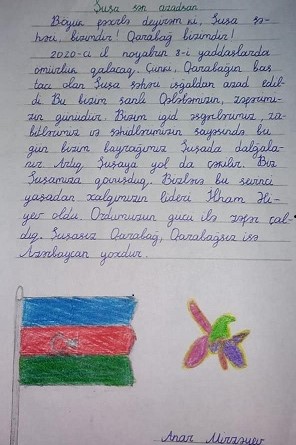 Şuşa sən azadsan
Böyük fəxrlə deyirəm ki, Şuşa şə-
həri, bizimdir! Qarabağ bizimdir!
2020-ci il noyabrın 8-i yaddaşlarda
ömürlük qalacaq. Çünki, Qarabağın baş
tacı olan Şuşa şəhəri işğaldan azad edil-
di. Bu bizim şanlı Qələbəmizin, zəfərimi-
zin günüdür. Bizim igid əsgərlərimiz, za-
bitlərimiz və şəhidlərimizin sayəsində bu
gün bizim bayrağımız Şuşada dalğala-
nır. Artıq Şuşaya yol da çəkilir. Biz
Şuşamıza qovuşduq. Bizlərə bu sevinci
yaşadan xalqımızın lideri İlham Əli-
yev oldu. Ordumuzun gücü ilə zəfər çal-
dıq. Şuşasız Qarabağ, Qarabağsız isə
Azərbaycan yoxdur.
Anar Mirzəyev